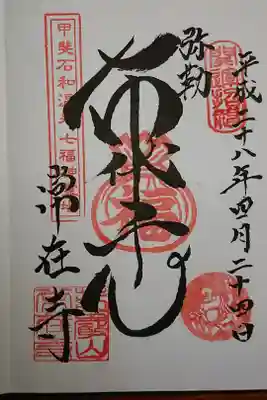 平成二十八年四月二十四日
弥勒
布袋尊
甲斐石和温泉七福神
常在寺